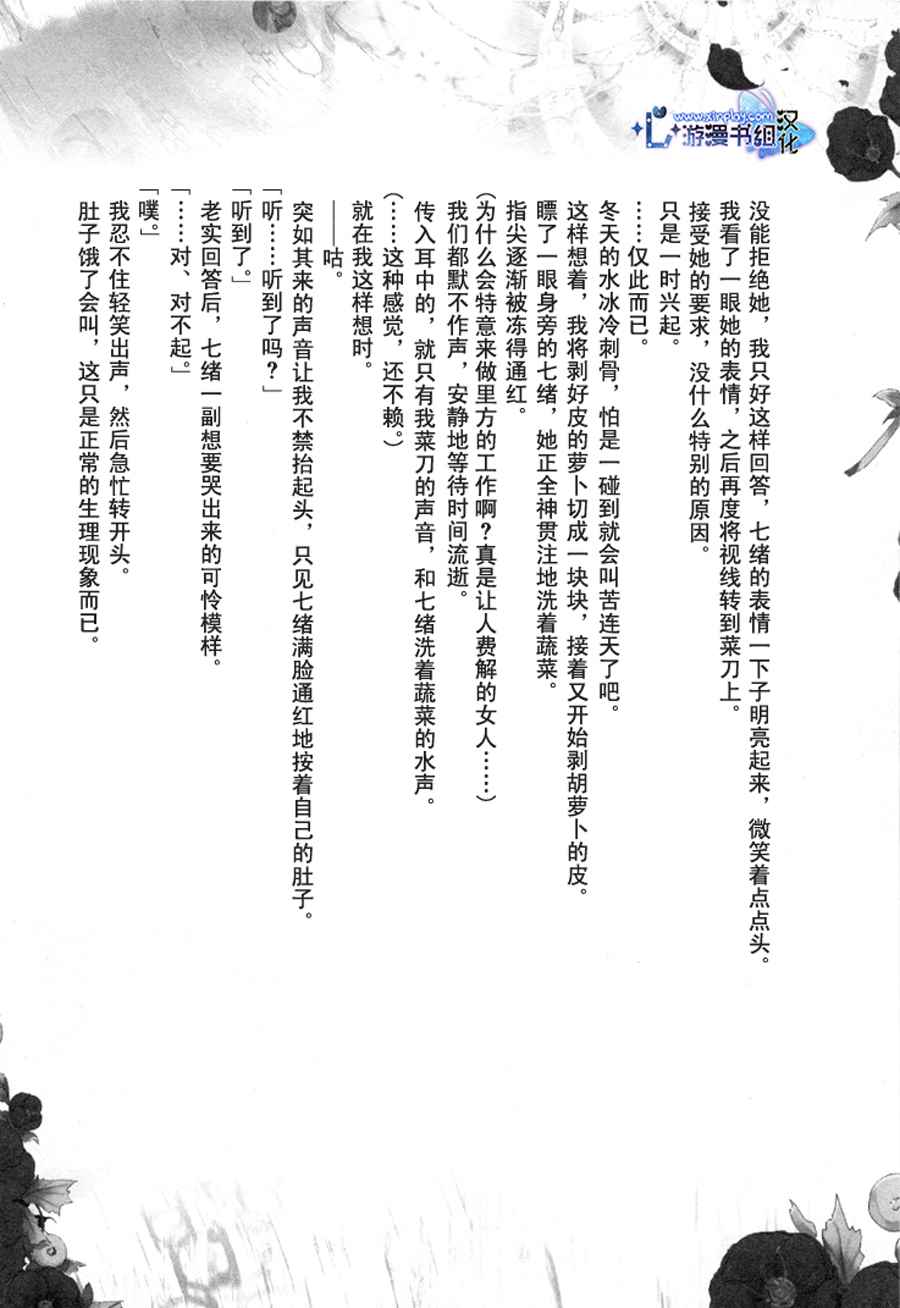 www.xinplay.com
游漫书组汉化
没能拒绝她，我只好这样回答，七绪的表情一下子明亮起来，微笑着点点头。
我看了一眼她的表情，之后再度将视线转到菜刀上。
接受她的要求，没什么特别的原因。
只是一时兴起。
……仅此而已。
冬天的水冰冷刺骨，怕是一碰到就会叫苦连天了吧。
这样想着，我将剥好皮的萝卜切成一块块，接着又开始剥胡萝卜的皮。
瞟了一眼身旁的七绪，她正全神贯注地洗着蔬菜。
指尖逐渐被冻得通红。
（为什么会特意来做里方的工作啊？真是让人费解的女人……）
我们都默不作声，安静地等待时间流逝。
传入耳中的，就只有我菜刀的声音，和七绪洗着蔬菜的水声。
（……这种感觉，还不赖。）
就在我这样想时。
——咕。
突如其来的声音让我不禁抬起头，只见七绪满脸通红地按着自己的肚子。
「听……听到了吗？」
「听到了。」
老实回答后，七绪一副想要哭出来的可怜模样。
「……对、对不起。」
「噗。」
我忍不住轻笑出声，然后急忙转开头。
肚子饿了会叫，这只是正常的生理现象而已。